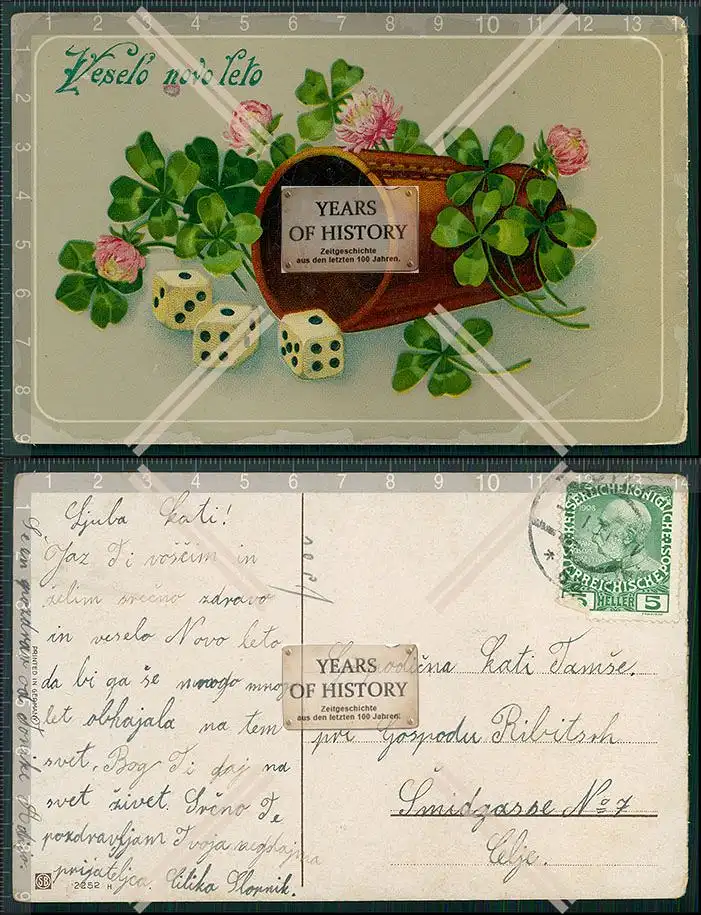 Veselo novo leto
YEARS
OF HISTORY
Zeitgeschichte
aus den letzten 100 Jahren.
Ljuba Kati!
Jaz Ti voščim in
želim srečno zdravo
in veselo Novo leto
da bi ga še mnogo
let obhajala na tem
svet. Bog Ti daj na
svet živet. Srčno Te
pozdravljam Tvoja
prijateljca. Cilika Slornik.
PRINTED IN GERMANY
2252 H
KAISERLICHE KÖNIGLICHE
ÖSTERREICHISCHE POST
1908
5 HELLER 5
YEARS
OF HISTORY
Zeitgeschichte
aus den letzten 100 Jahren.
Kati Tamše.
pri Gospodu Ribitsch
Šmidgasse No 7
Celje.